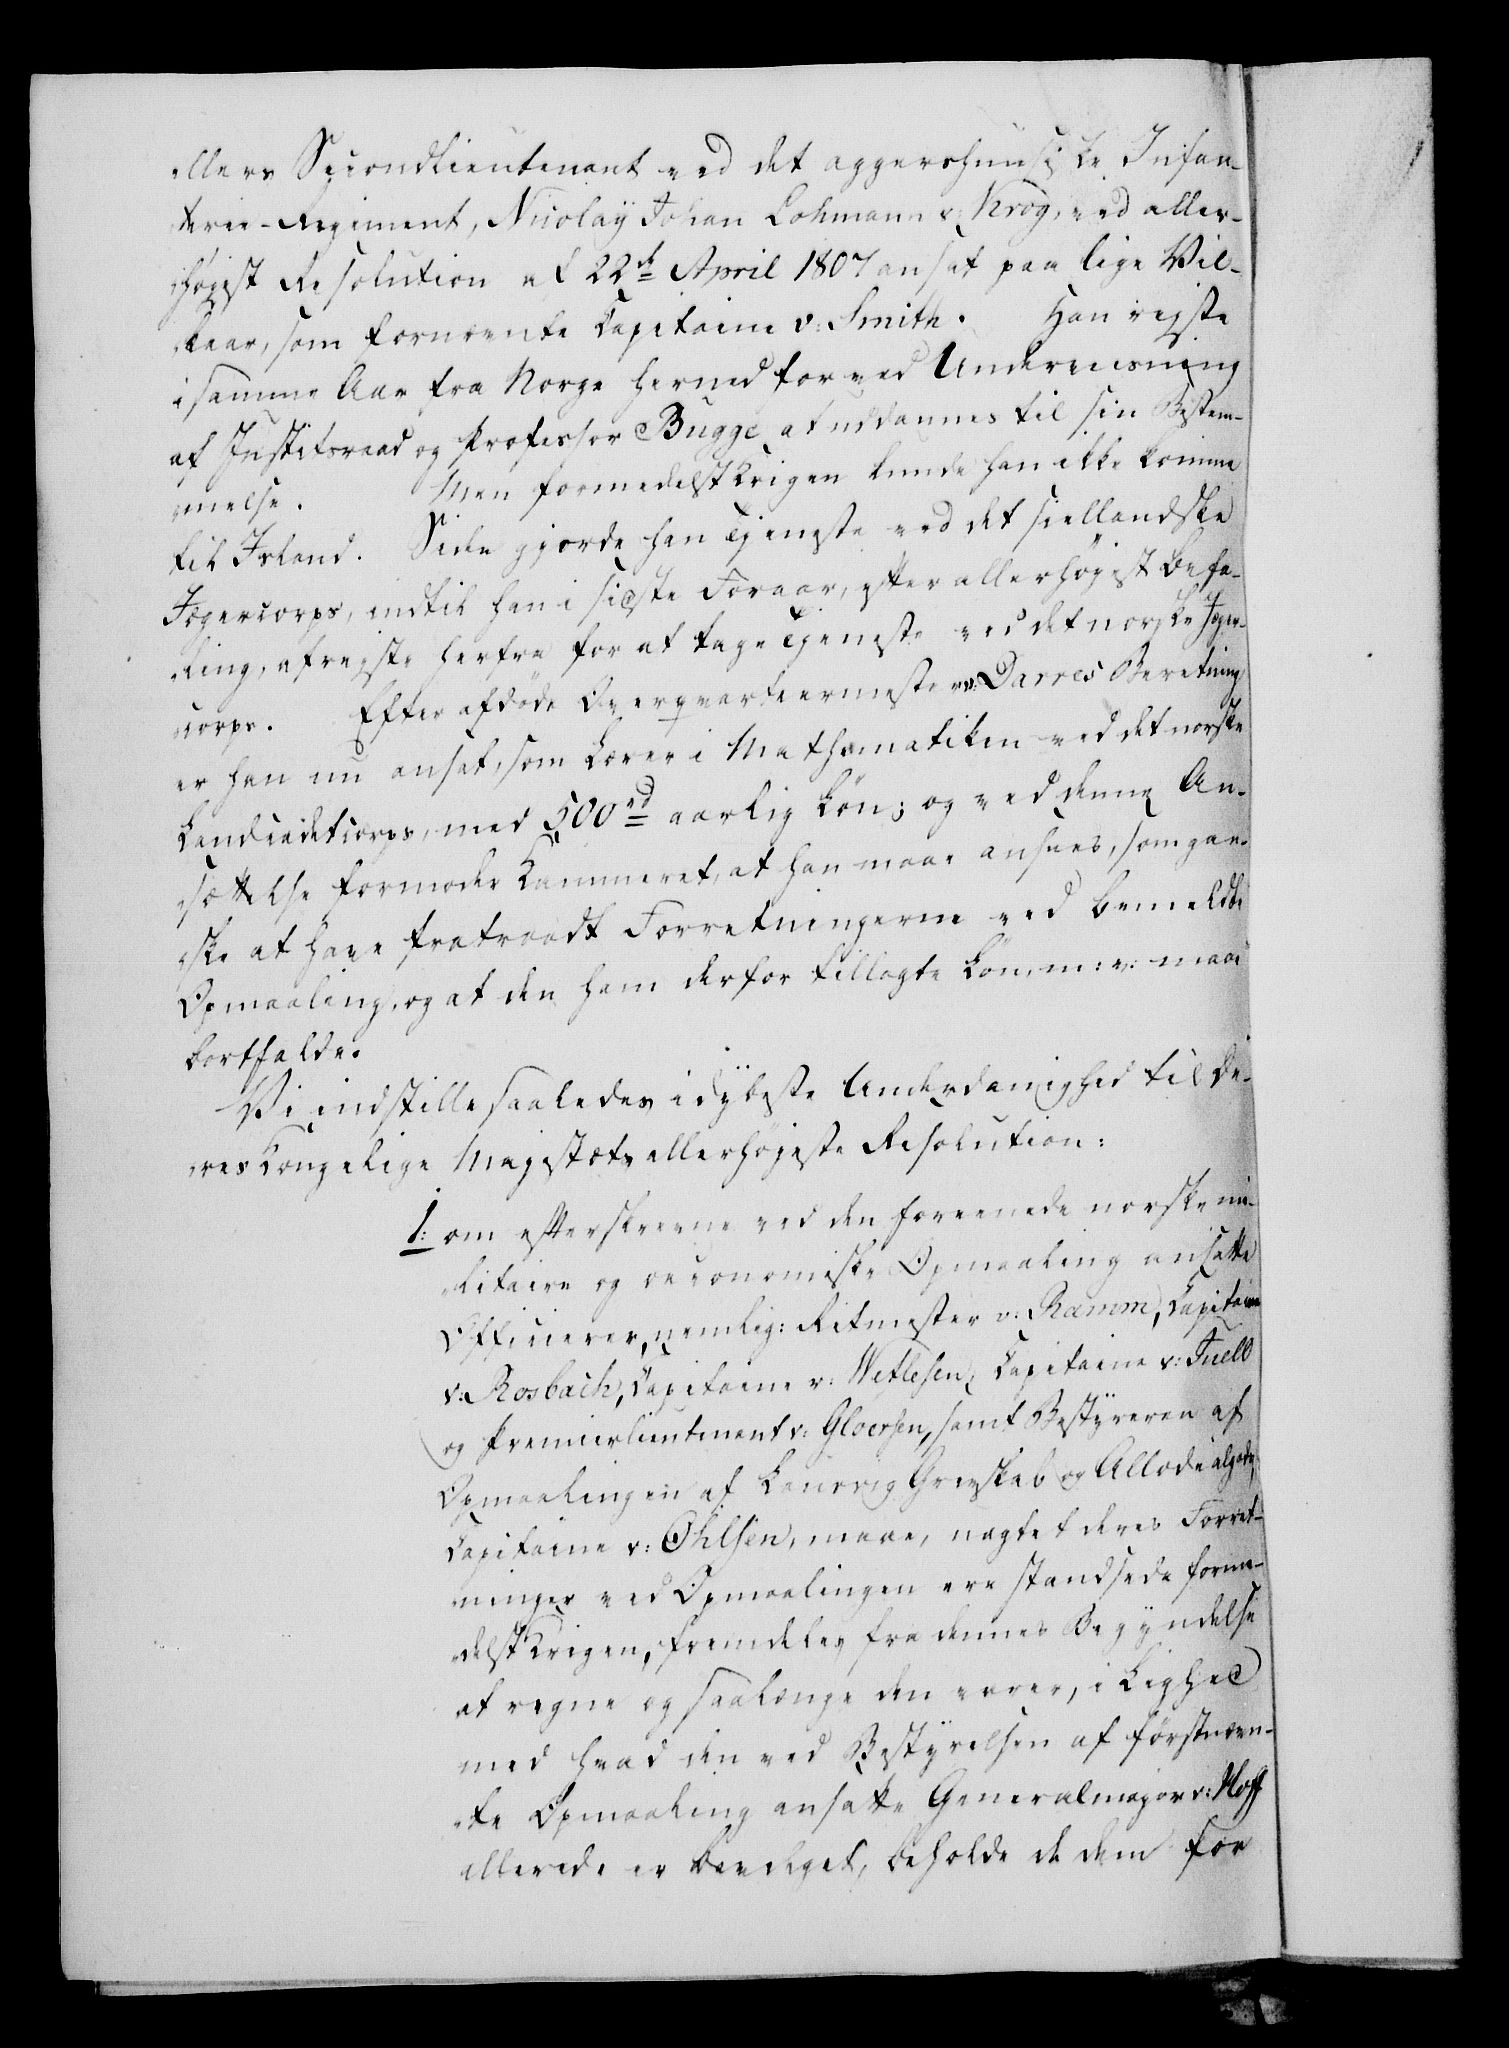 ellers Secondlieutenant ved det aggershuusiske Infan-
terie-Regiment, Nicolaÿ Johan Lohmann v: Krog, ved aller-
højest Resolution af 22de April 1807 ansat paa lige Vil-
kaar, som fornævnte Capitaine v: Smith. Han rejste
i samme Aar fra Norge herned for ved Underviisning
af Justitsraad og Professor Bugge at uddannes til sin Bestem-
melse. Men formedelst Krigen kunde han ikke komme
til Island. Siden gjorde han Tjeneste ved det siellandske
Jægercorps, indtil han i sidste Foraar, efter allerhøjest Befa-
ling, afrejste herfra for at tage Tjeneste ved det norske Jæger-
corps. Efter afdøde Overqvarteermester v: Darres Beretning
er han nu ansat, som Lærer i Mathematiken ved det norske
Landcadetcorps, med 500 rd aarlig Løn; og ved denne An-
sættelse formoder Kammeret, at han maae ansees, som gan-
ske at have fratraadt Forretningerne ved bemeldte
Opmaaling, og at den ham derfor tillagte Løn m: v: maae
bortfalde.
Vi indstille saaledes i dÿbeste Underdanighed til De-
res Kongelige Majestæts allerhøjeste Resolution:
1: om efterskrevne ved den forenede norske mi-
litaire og oeconomiske Opmaaling ansatte
Officierer, nemlig: Ritmester v: Ramm, Capitaine
v: Rosbach, Capitaine v: Wetlesen, Capitaine v: Juell
og Premierlieutenant v: Gloersen, samt Bestÿreren af
Opmaalingen af Laurvig Grevskab og Allodialgods,
Capitaine v: Ohlsen, maae, uagtet deres Forret-
ninger ved Opmaalingen ere standsede forme-
delst Krigen, fremdeles fra dennes Begÿndelse
at regne og saalænge den varer, i Lighed
med hvad den ved Bestÿrelsen af førstnævn-
te Opmaaling ansatte Generalmajor v: Hoff
allerede er bevilget, beholde de dem for